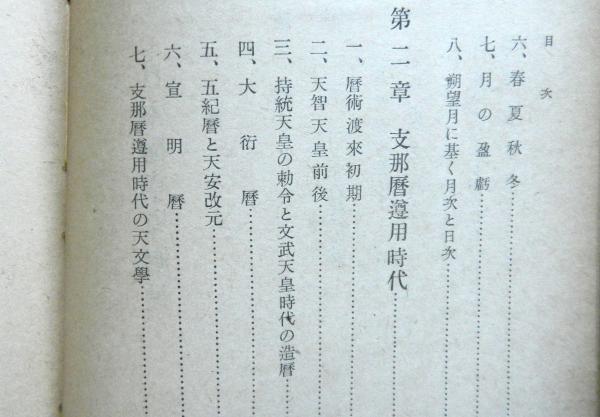 目次
六、春夏秋冬
七、月の盈虧
八、朔望月に基く月次と日次
第二章 支那曆遵用時代
一、曆術渡來初期
二、天智天皇前後
三、持統天皇の勅令と文武天皇時代の造曆
四、大衍曆
五、五紀曆と天安改元
六、宣明曆
七、支那曆遵用時代の天文學